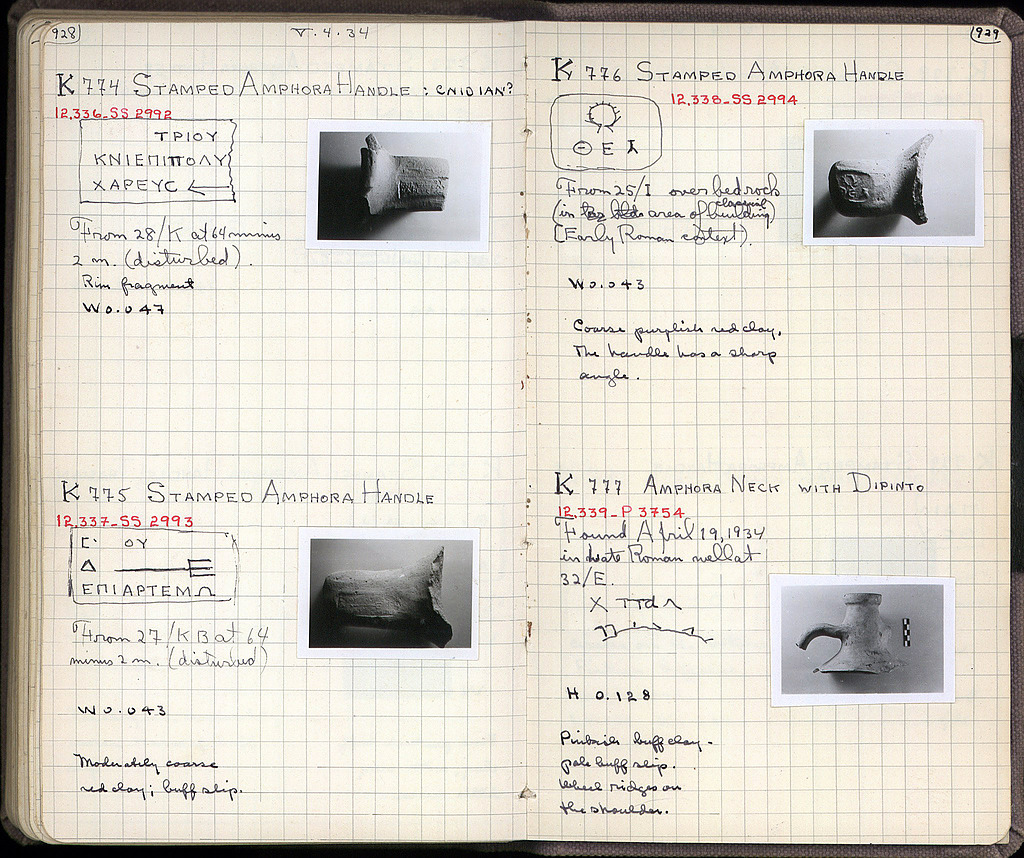 928
V.4.34
K 774 STAMPED AMPHORA HANDLE : CNIDIAN?
12.336_SS 2992
ΤΡΙΟΥ
ΚΝΙΕΠΙΠΟΛΥ
ΧΑΡΕΥС
From 28/K at 64 minus
2 m. (disturbed).
Rim fragment
W 0.047
K 775 STAMPED AMPHORA HANDLE
12.337_SS 2993
ΟΥ
Δ
ΕΠΙΑΡΤΕΜ
From 27/KB at 64
minus 2 m. (disturbed)
W 0.043
Moderately coarse
red clay; buff slip.
929
K 776 STAMPED AMPHORA HANDLE
12.338_SS 2994
Θ Ε
From 25/I over bedrock
(in area of building)
(Early Roman context).
W 0.043
Coarse purplish red clay.
The handle has a sharp
angle.
K 777 AMPHORA NECK WITH DIPINTO
12.339_P 3754
Found April 19, 1934
in late Roman well at
32/E.
H 0.128
Pinkish buff clay.
pale buff slip.
Wheel ridges on
the shoulder.